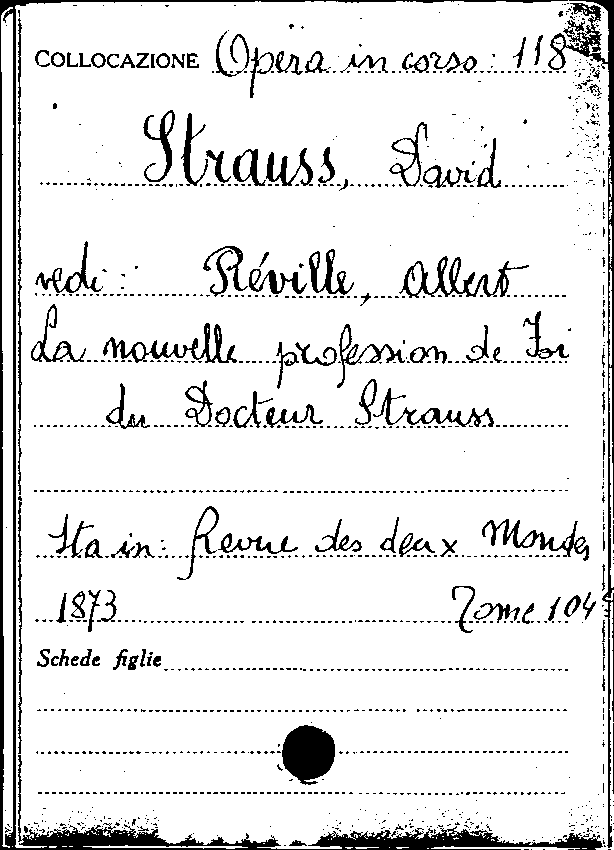 COLLOCAZIONE Opera in corso: 118
Strauss, David
vedi: Réville, Albert
La nouvelle profession de Foi
du Docteur Strauss
Sta in: Revue des deux Mondes
1873 Tome 104e
Schede figlie